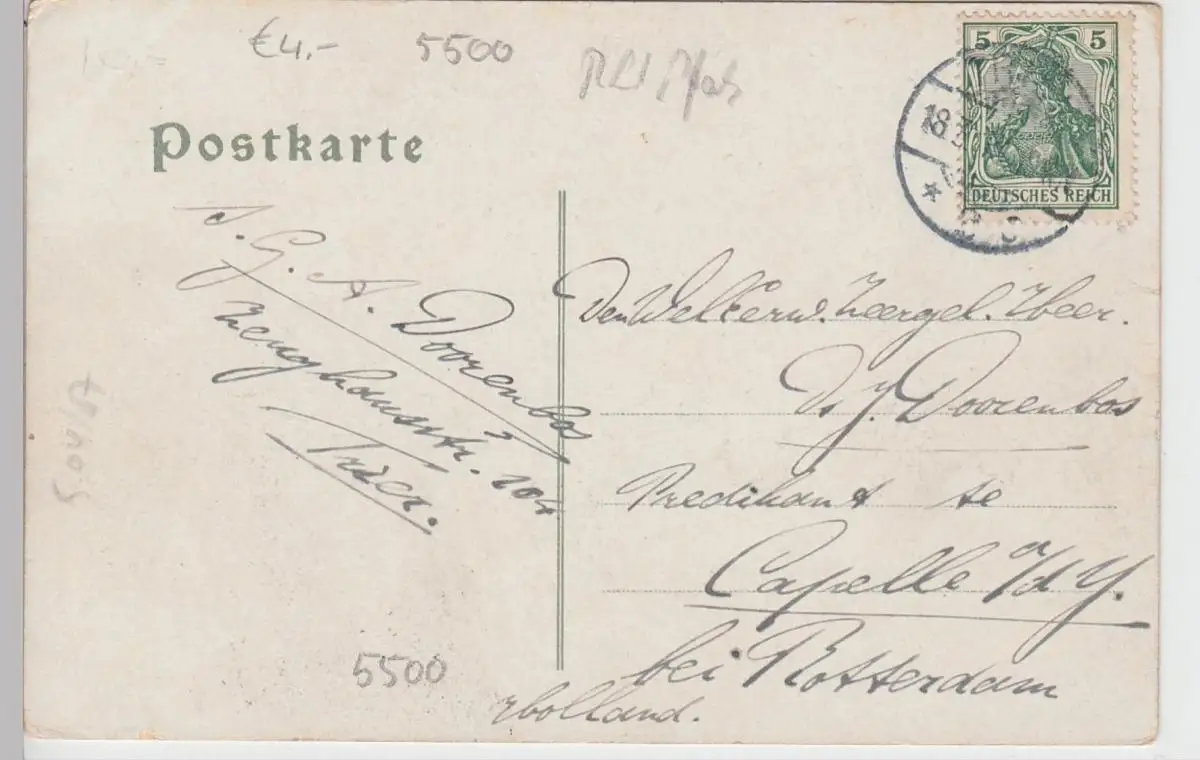 €4,- 5500
Postkarte
5 5
DEUTSCHES REICH
18
J. G. A. Doorenbos
Zeughausstr. 104
Trier.
Den WelEerw. Zeergel. Heer.
Ds J. Doorenbos
Predikant te
Capelle a/d Y.
bei Rotterdam
Holland.
5500